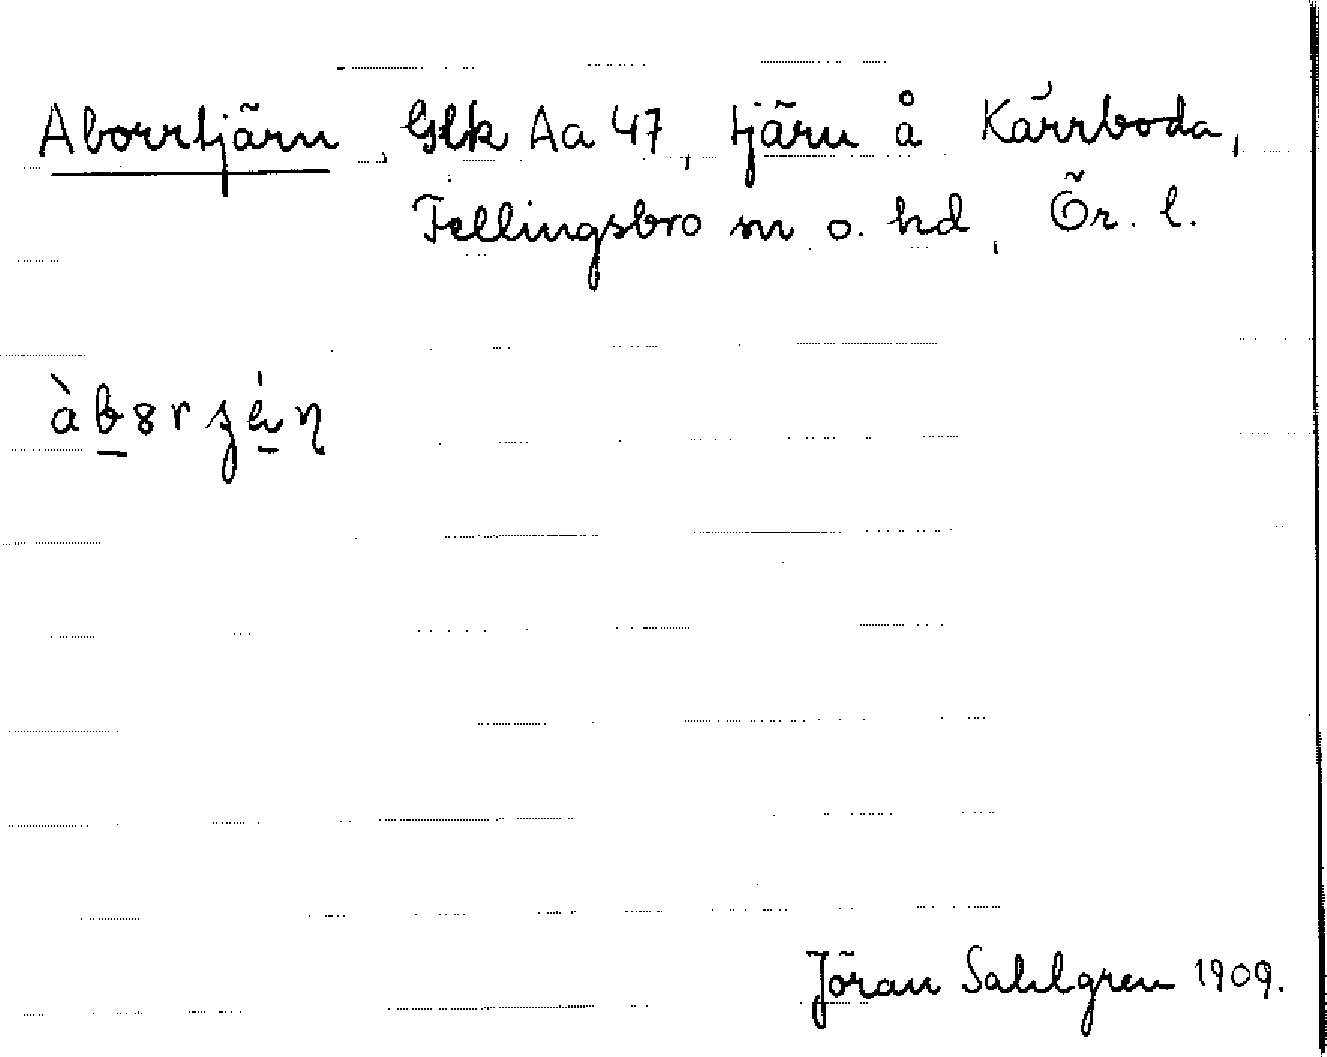 Aborrtjärn, Glk Aa 47, tjärn å Kärrboda,
Fellingsbro sn o. hd, Ör. l.
Jöran Sahlgren 1909.